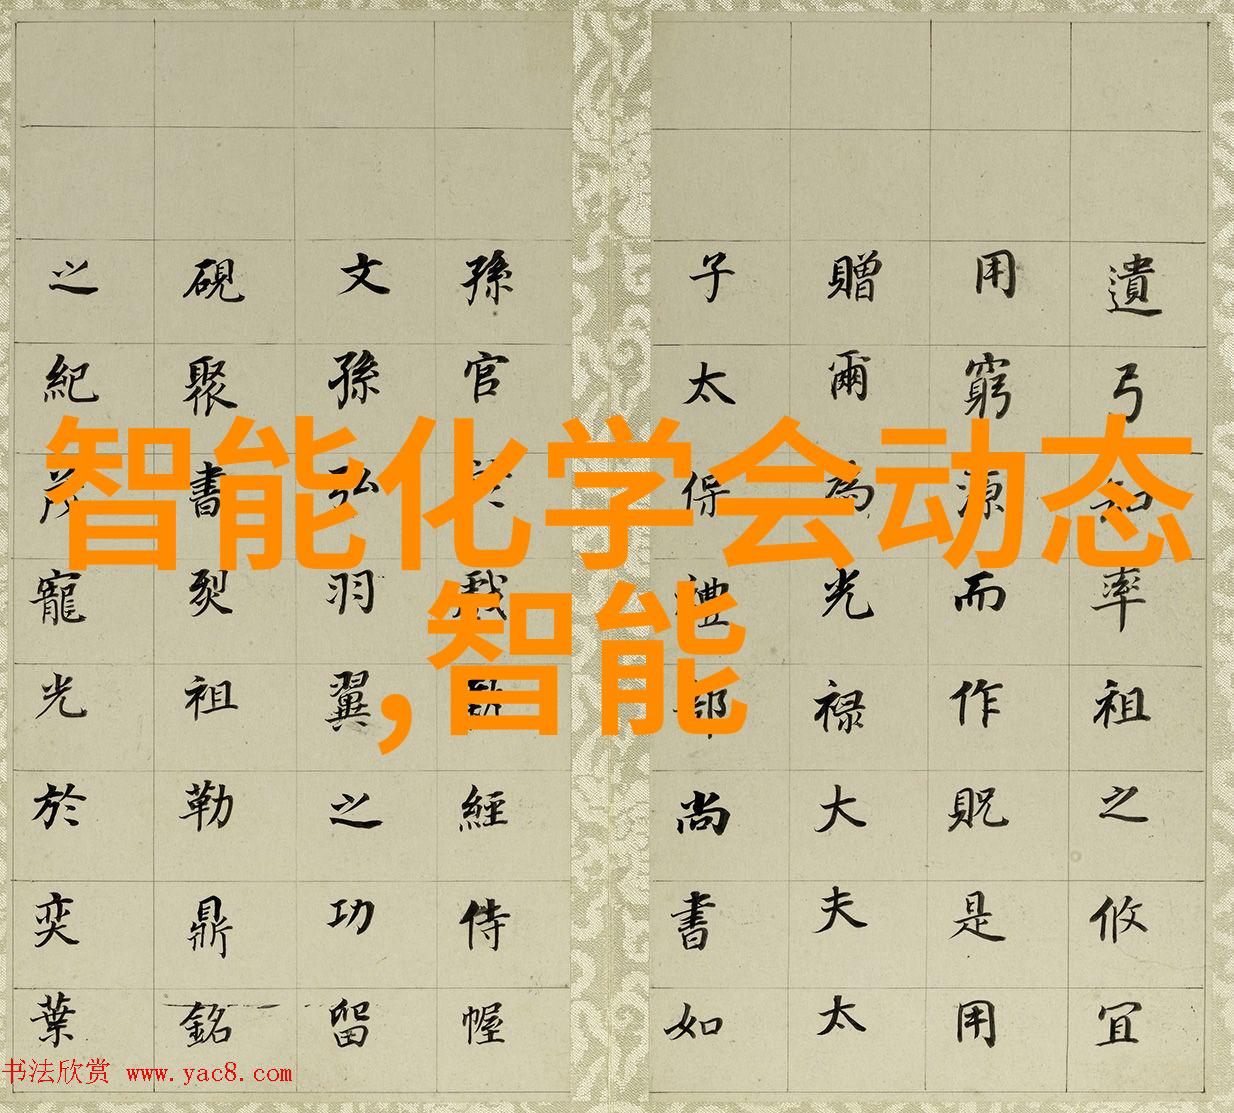 智能化学会动态
,智能
遺弓率祖之攸宜
用窮源而作貺是用
贈爾為光禄大夫太
子太保禮部尚書如
孫官戲經侍幄
文孫弘羽翼之功留
硯聚書烈祖勒鼎銘
之紀茂寵光於奕葉
书法欣赏 www.yac8.com